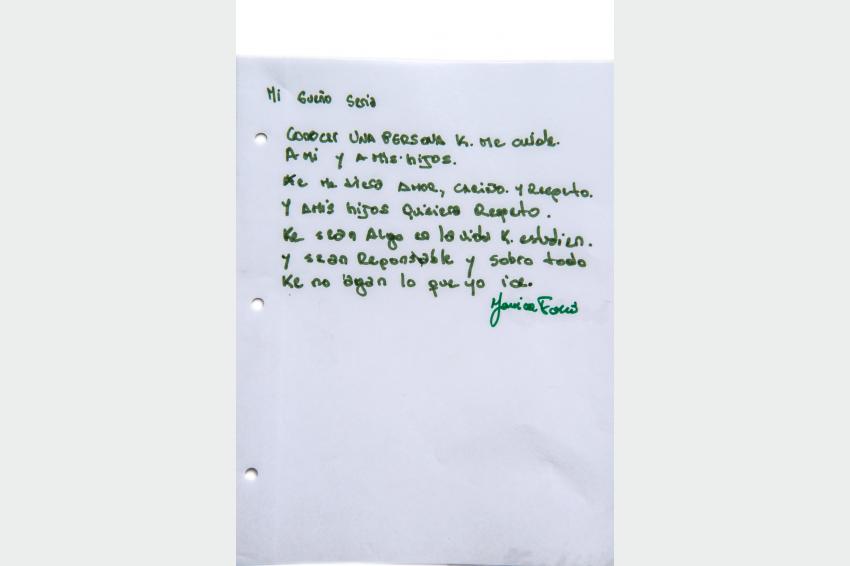 Mi Sueño Seria
CONOCER UNA PERSONA K. Me cuide.
A Mi y A Mis hijos.
Ke Me diera AMOR, CARiÑO. Y Respeto.
Y AMis hijos Quisiera Respeto.
Ke sean Algo en la vida K. estudien.
Y sean Reponsable y sobro todo
Ke no agan lo que yo ice.